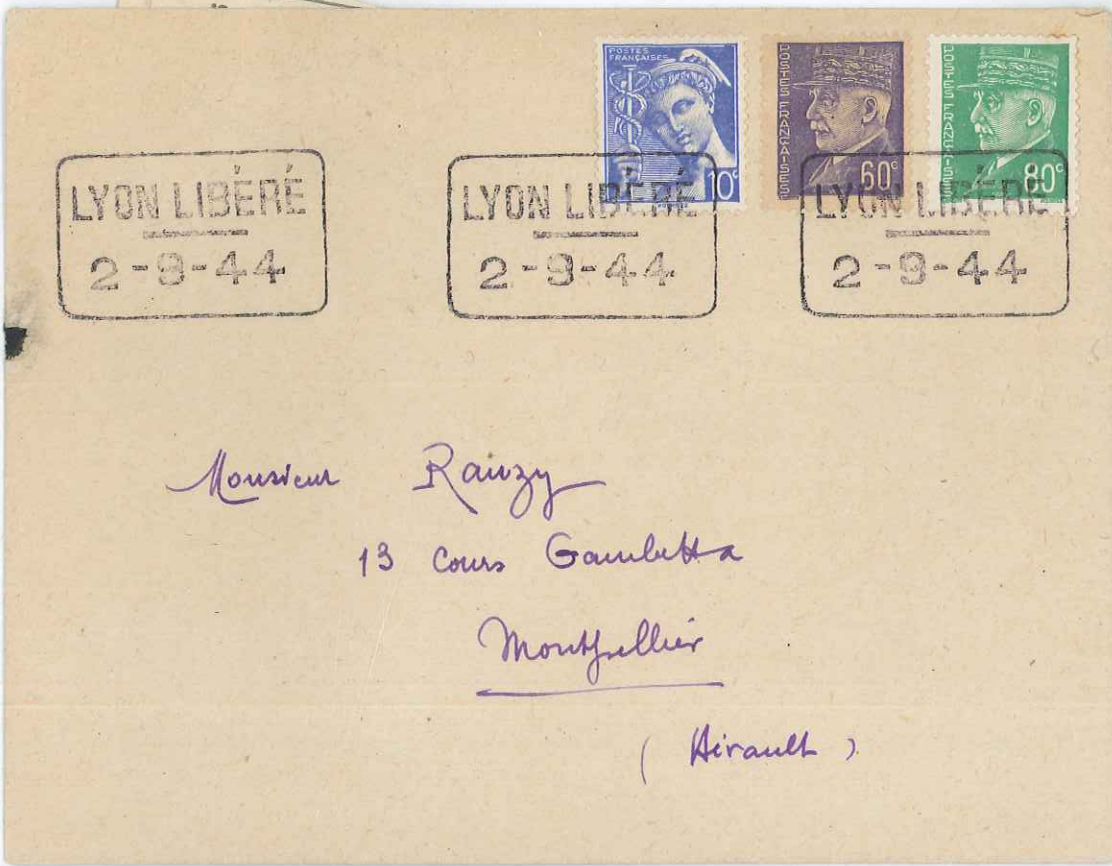 POSTES
FRANÇAISES
10c
POSTES FRANÇAISES
60c
POSTES FRANÇAISES
80c
LYON LIBÉRÉ
2-9-44
LYON LIBÉRÉ
2-9-44
LYON LIBÉRÉ
2-9-44
Monsieur Rauzy
13 Cours Gambetta
Montpellier
(Hérault)